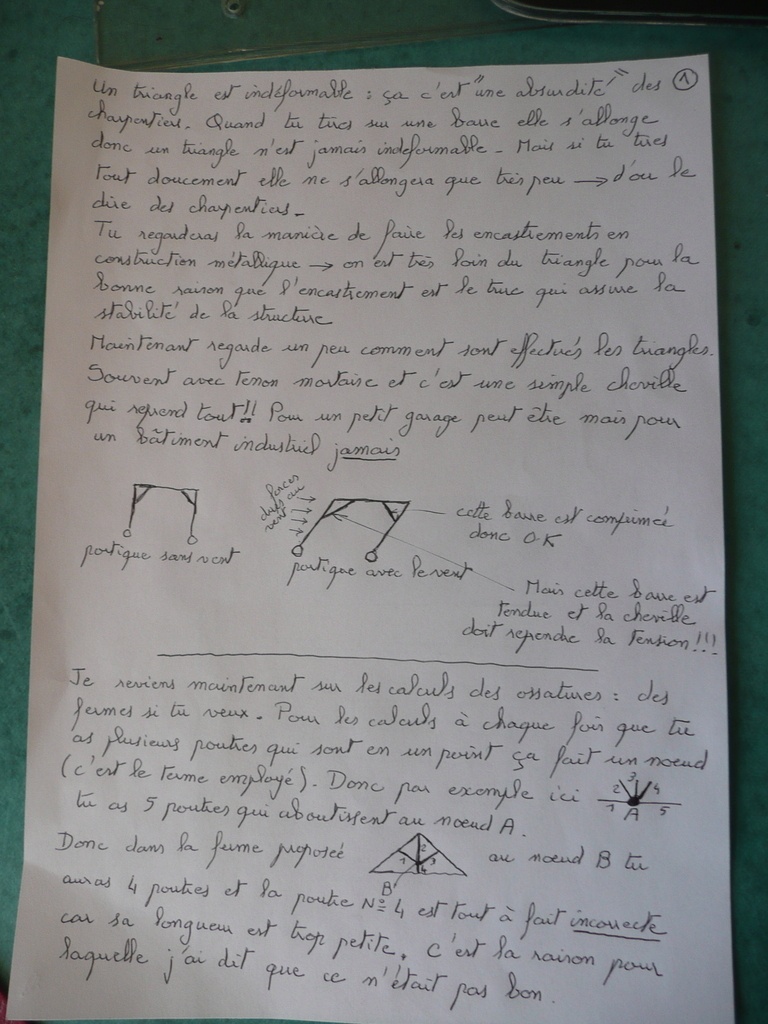 Un triangle est indéformable : ça c'est "une absurdité" des ①
charpentiers. Quand tu tires sur une barre elle s'allonge
donc un triangle n'est jamais indeformable - Mais si tu tires
tout doucement elle ne s'allongera que très peu → d'ou le
dire des charpentiers -
Tu regarderas la manière de faire les encastrements en
construction métallique → on est très loin du triangle pour la
bonne raison que l'encastrement est le truc qui assure la
stabilité de la structure
Maintenant regarde un peu comment sont effectués les triangles.
Souvent avec tenon mortaise et c'est une simple cheville
qui reprend tout!! Pour un petit garage peut être mais pour
un bâtiment industriel jamais
forces
dues au
vent
cette barre est comprimée
donc OK
portique sans vent
portique avec le vent
Mais cette barre est
tendue et la cheville
doit reprendre la tension !!!
Je reviens maintenant sur les calculs des ossatures : des
fermes si tu veux. Pour les calculs à chaque fois que tu
as plusieurs poutres qui sont en un point ça fait un noeud
(c'est le terme employé). Donc par exemple ici 1 2 3 4 5 A
tu as 5 poutres qui aboutissent au noeud A.
Donc dans la ferme proposée 1 2 3 4 B au noeud B tu
auras 4 poutres et la poutre N° 4 est tout à fait incorrecte
car sa longueur est trop petite. C'est la raison pour
laquelle j'ai dit que ce n'était pas bon.